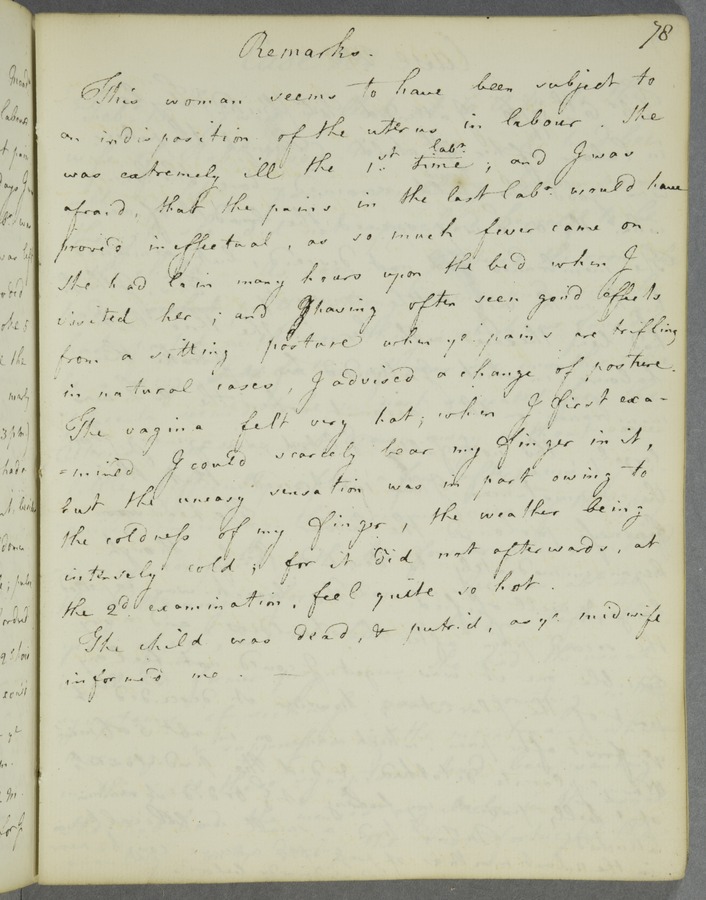 78
Remarks.
This woman seems to have been subject to
an indisposition of the uterus in labour. She
was extremely ill the 1st. labr. time; and I was
afraid, that the pains in the last labr. would have
proved ineffectual, as so much fever came on.
She had lain many hours upon the bed when I
visited her; and I having often seen good effects
from a sitting posture when ye. pains are trifling
in natural cases, I advised a change of posture.
The vagina felt very hot; when I first exa-
=mined I could scarcely bear my finger in it,
but the uneasy sensation was in part owing to
the coldness of my finger, the weather being
intensely cold; for it did not afterwards, at
the 2d. examination, feel quite so hot.
The child was dead, & putrid, as ye. midwife
informed me. —